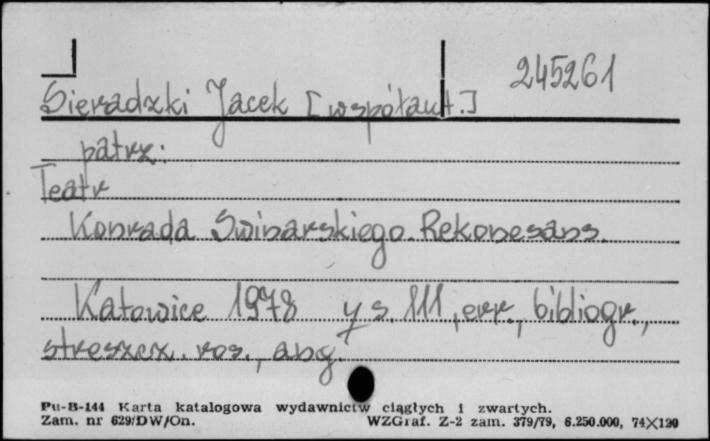 245261
Sieradzki Jacek [współaut.]
patrz:
Teatr
Konrada Swinarskiego. Rekonesans.
Katowice 1978 4 s. 111, err., bibliogr.,
streszcz. ros., ang.
Pu-B-144 Karta katalogowa wydawnictw ciągłych i zwartych.
Zam. nr 629/DW/On. WZGraf. Z-2 zam. 379/79, 6.250.000, 74×120